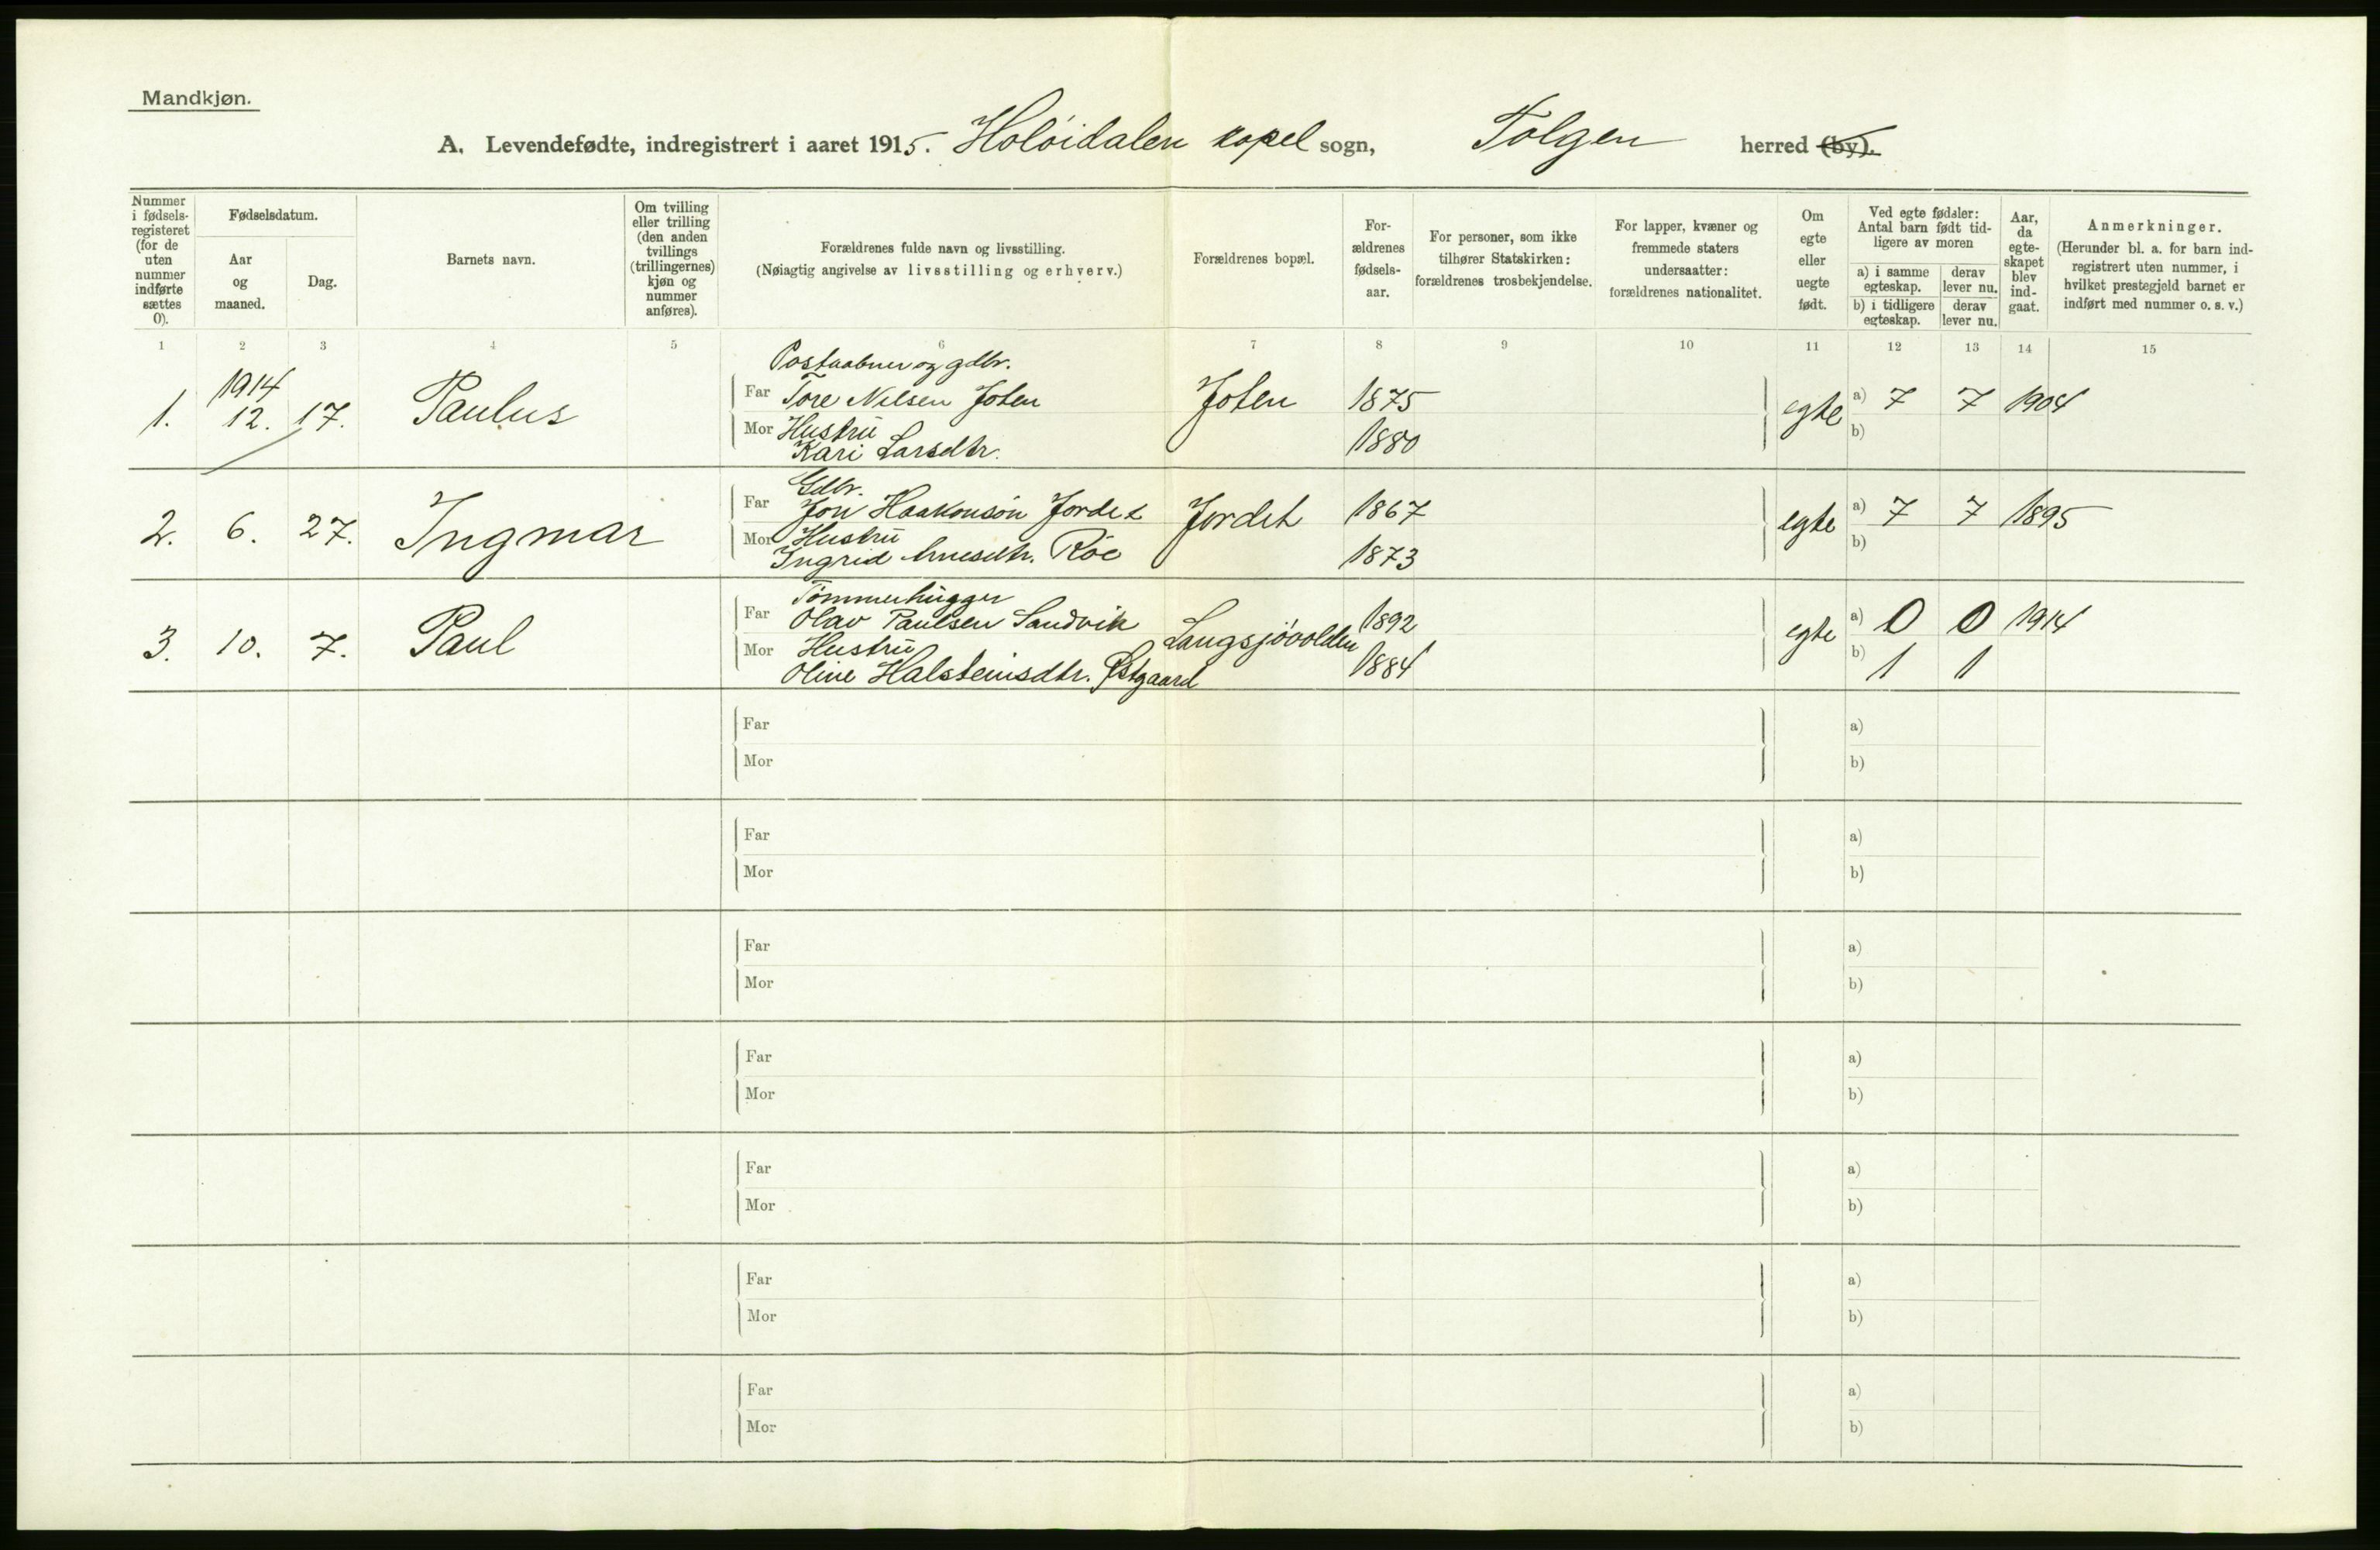 Mandkjøn.
A. Levendefødte, indregistrert i aaret 1915. Holöidalen kapel sogn, Tolgen herred (by).
Nummer i fødsels-registeret (for de uten nummer indførte sættes 0).
Fødselsdatum.
Aar og maaned.
Dag.
Barnets navn.
Om tvilling eller trilling (den anden tvillings (trillingernes) kjøn og nummer anføres).
Forældrenes fulde navn og livsstilling.
(Nøiagtig angivelse av livsstilling og erhverv.)
Forældrenes bopæl.
For-ældrenes fødsels-aar.
For personer, som ikke tilhører Statskirken: forældrenes trosbekjendelse.
For lapper, kvæner og fremmede staters undersaatter: forældrenes nationalitet.
Om egte eller uegte født.
Ved egte fødsler: Antal barn født tid-ligere av moren
a) i samme egteskap.
derav lever nu.
b) i tidligere egteskap.
derav lever nu.
Aar, da egte-skapet blev ind-gaat.
Anmerkninger.
(Herunder bl. a. for barn ind-registrert uten nummer, i hvilket prestegjeld barnet er indført med nummer o. s. v.)
1 2 3 4 5 6 7 8 9 10 11 12 13 14 15
Postaabner og gdbr.
1914
1. 12. 17. Paulus Far Tore Nilsen Joten Joten 1875 egte a) 7 7 1904
Mor Hustru 1880 b)
Kari Larsdtr.
Gdbr.
2. 6. 27. Ingmar Far Jon Haakonsøn Jordet Jordet 1867 egte a) 7 7 1895
Mor Hustru b)
Ingrid Arnesdtr. Röe 1873
Tömmerhugger
3. 10. 7. Paul Far Olav Paulsen Sandvik Langsjövolden 1892 egte a) 0 0 1914
Mor Hustru 1884 b) 1 1
Oline Halsteinsdtr. Østgaard
Far a)
Mor b)
Far a)
Mor b)
Far a)
Mor b)
Far a)
Mor b)
Far a)
Mor b)
Far a)
Mor b)
Far a)
Mor b)